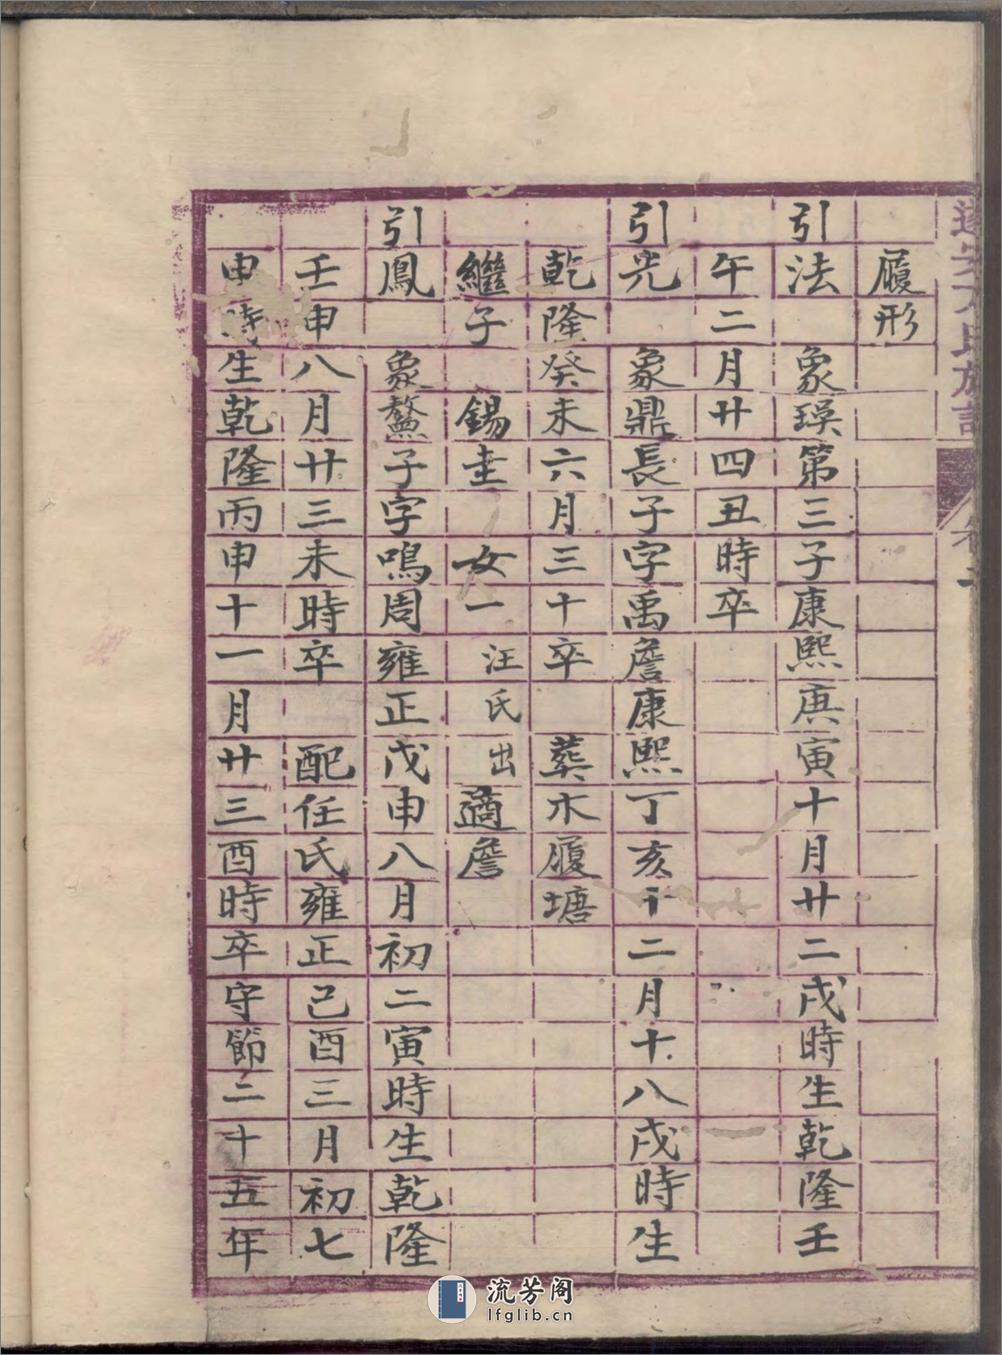 氏族譜
履形
引法 象瑛第三子康熙庚寅十月廿二戌時生乾隆壬
午二月廿四丑時卒
引光 象鼎長子字禹詹康熙丁亥十二月十八戌時生
乾隆癸未六月三十卒 葬水履塘
繼子 錫圭 女一汪氏出適詹
引鳳 象鰲子字鳴周雍正戊申八月初二寅時生乾隆
壬申八月廿三未時卒 配任氏雍正己酉三月初七
申時生乾隆丙申十一月廿三酉時卒守節二十五年
流芳阁
lfglib.cn